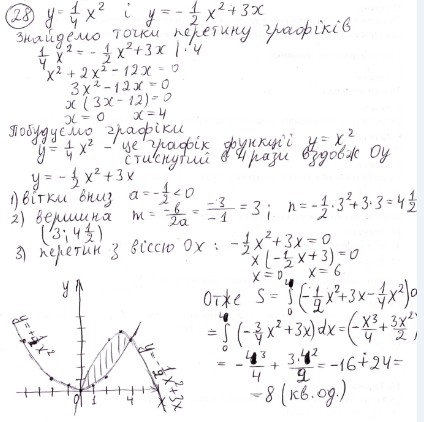 28) y = 1/4 x² і y = -1/2 x² + 3x
Знайдемо точки перетину графіків
1/4 x² = -1/2 x² + 3x | · 4
x² + 2x² - 12x = 0
3x² - 12x = 0
x (3x - 12) = 0
x = 0 x = 4
Побудуємо графіки
y = 1/4 x² - це графік функції y = x²
стиснутий в 4 рази вздовж Oy
y = -1/2 x² + 3x
1) вітки вниз a = -1/2 < 0
2) вершина m = -b/2a = -3/-1 = 3; n = -1/2 · 3² + 3·3 = 4 1/2
(3; 4 1/2)
3) перетин з віссю Ox: -1/2 x² + 3x = 0
x (-1/2 x + 3) = 0
x = 0 x = 6
y
0 1
x
y = -1/2 x² + 3x
Отже S = ∫₀⁴ (-1/2 x² + 3x - 1/4 x²)
= ∫₀⁴ (-3/4 x² + 3x) dx = (-x³/4 + 3x²/2)
= -4³/4 + 3·4²/2 = -16 + 24 =
= 8 (кв. од.)